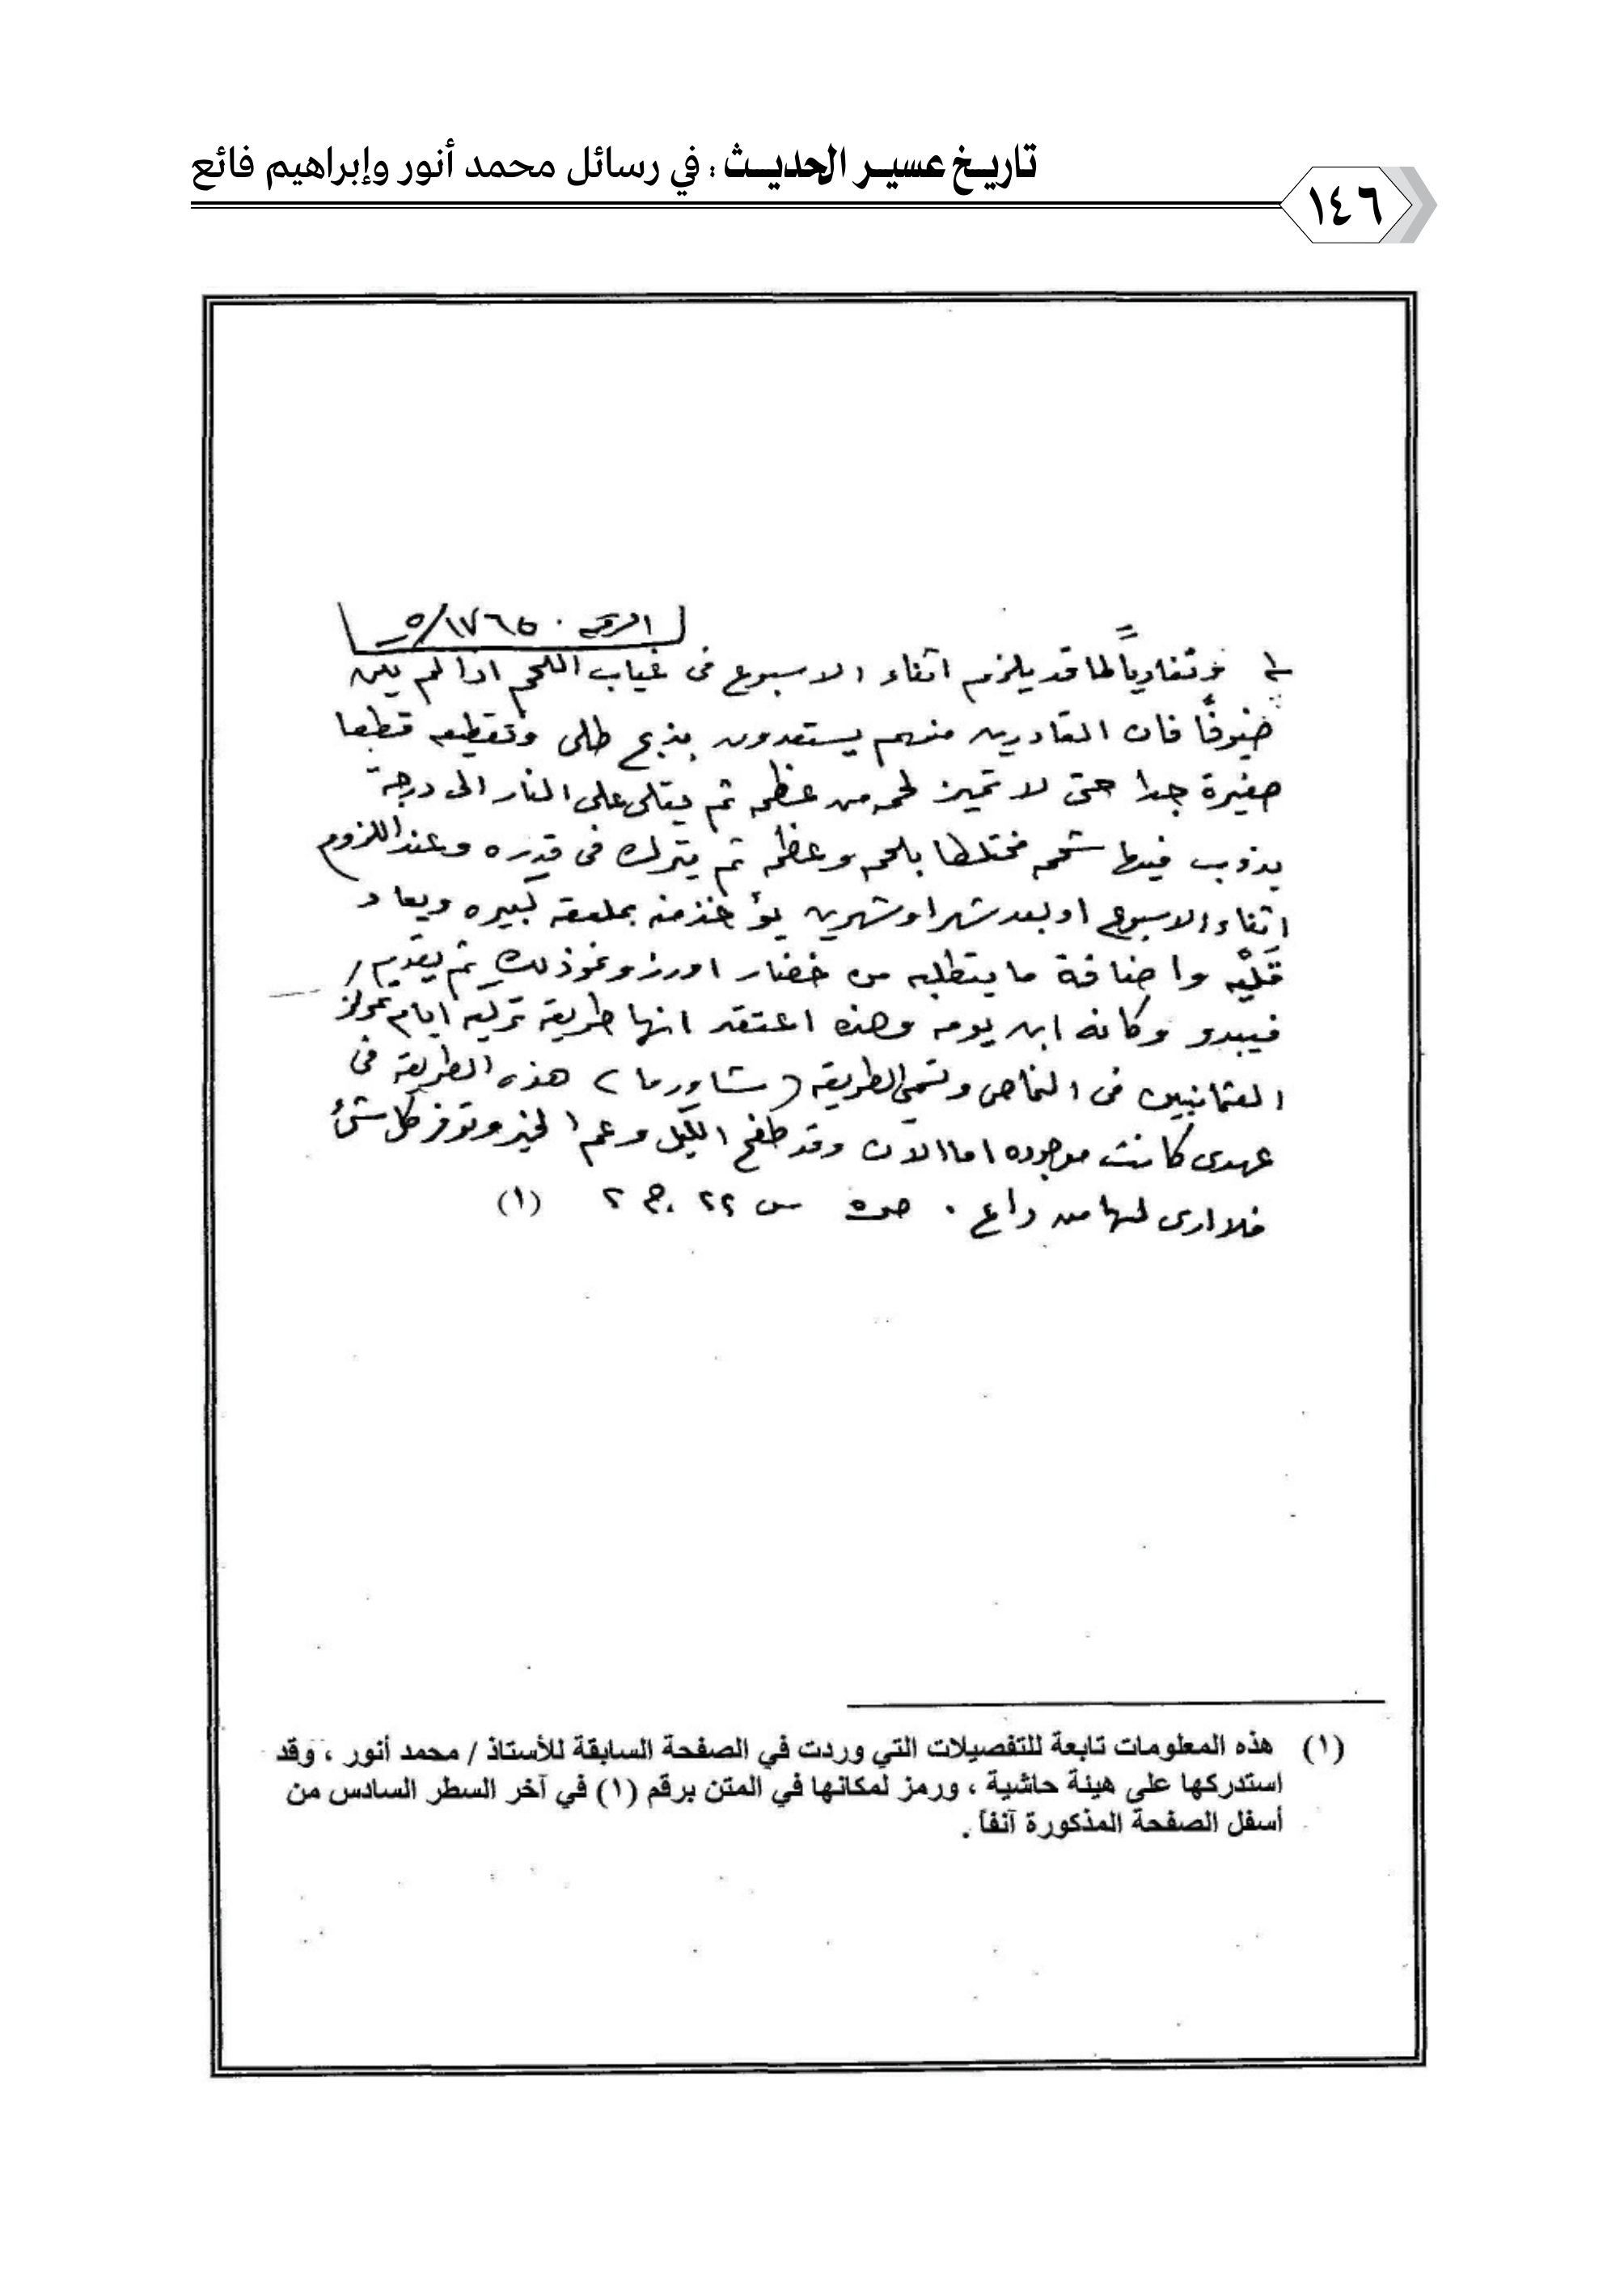 تاريخ عسير الحديث : في رسائل محمد أنور وإبراهيم فائع
١٤٦
الرقم ١٧٦٥/٥
وتفادياً لما قد يلزم اثناء الاسبوع فى غياب اللحم اذا لم يكن
ضيوفًا فان القادرين منهم يستعدون بذبح طلى وتقطيعه قطعا
صغيرة جدا حتى لا تميز لحمه من عظمه ثم يقلى على النار الى درجة
يذوب فيها شحمه مختلطا بلحمه وعظمه ثم يترك فى قدره وعند اللزوم
اثناء الاسبوع او بعد شهر او شهرين يؤخذ منه بملعقه كبيره ويعاد
قَلْيُه واضافة ما يتطلبه من خضار او رز ونحو ذلك ثم يقدم
فيبدو وكانه ابن يومه وهذه اعتقد انها طريقه تركيه ايام تمركز
العثمانيين فى النماص وتسمى الطريقه ( شاورما ) هذه الطريقه فى
عهدى كانت موجوده اما الان وقد طفح الكيل وعم الخير وتوفر كل شئ
فلا ارى لها من داع . ص٥ س ٢٢ ج ٢ (١)
(١) هذه المعلومات تابعة للتفصيلات التي وردت في الصفحة السابقة للأستاذ / محمد أنور ، وقد
استدركها على هيئة حاشية ، ورمز لمكانها في المتن برقم (١) في آخر السطر السادس من
أسفل الصفحة المذكورة آنفاً .